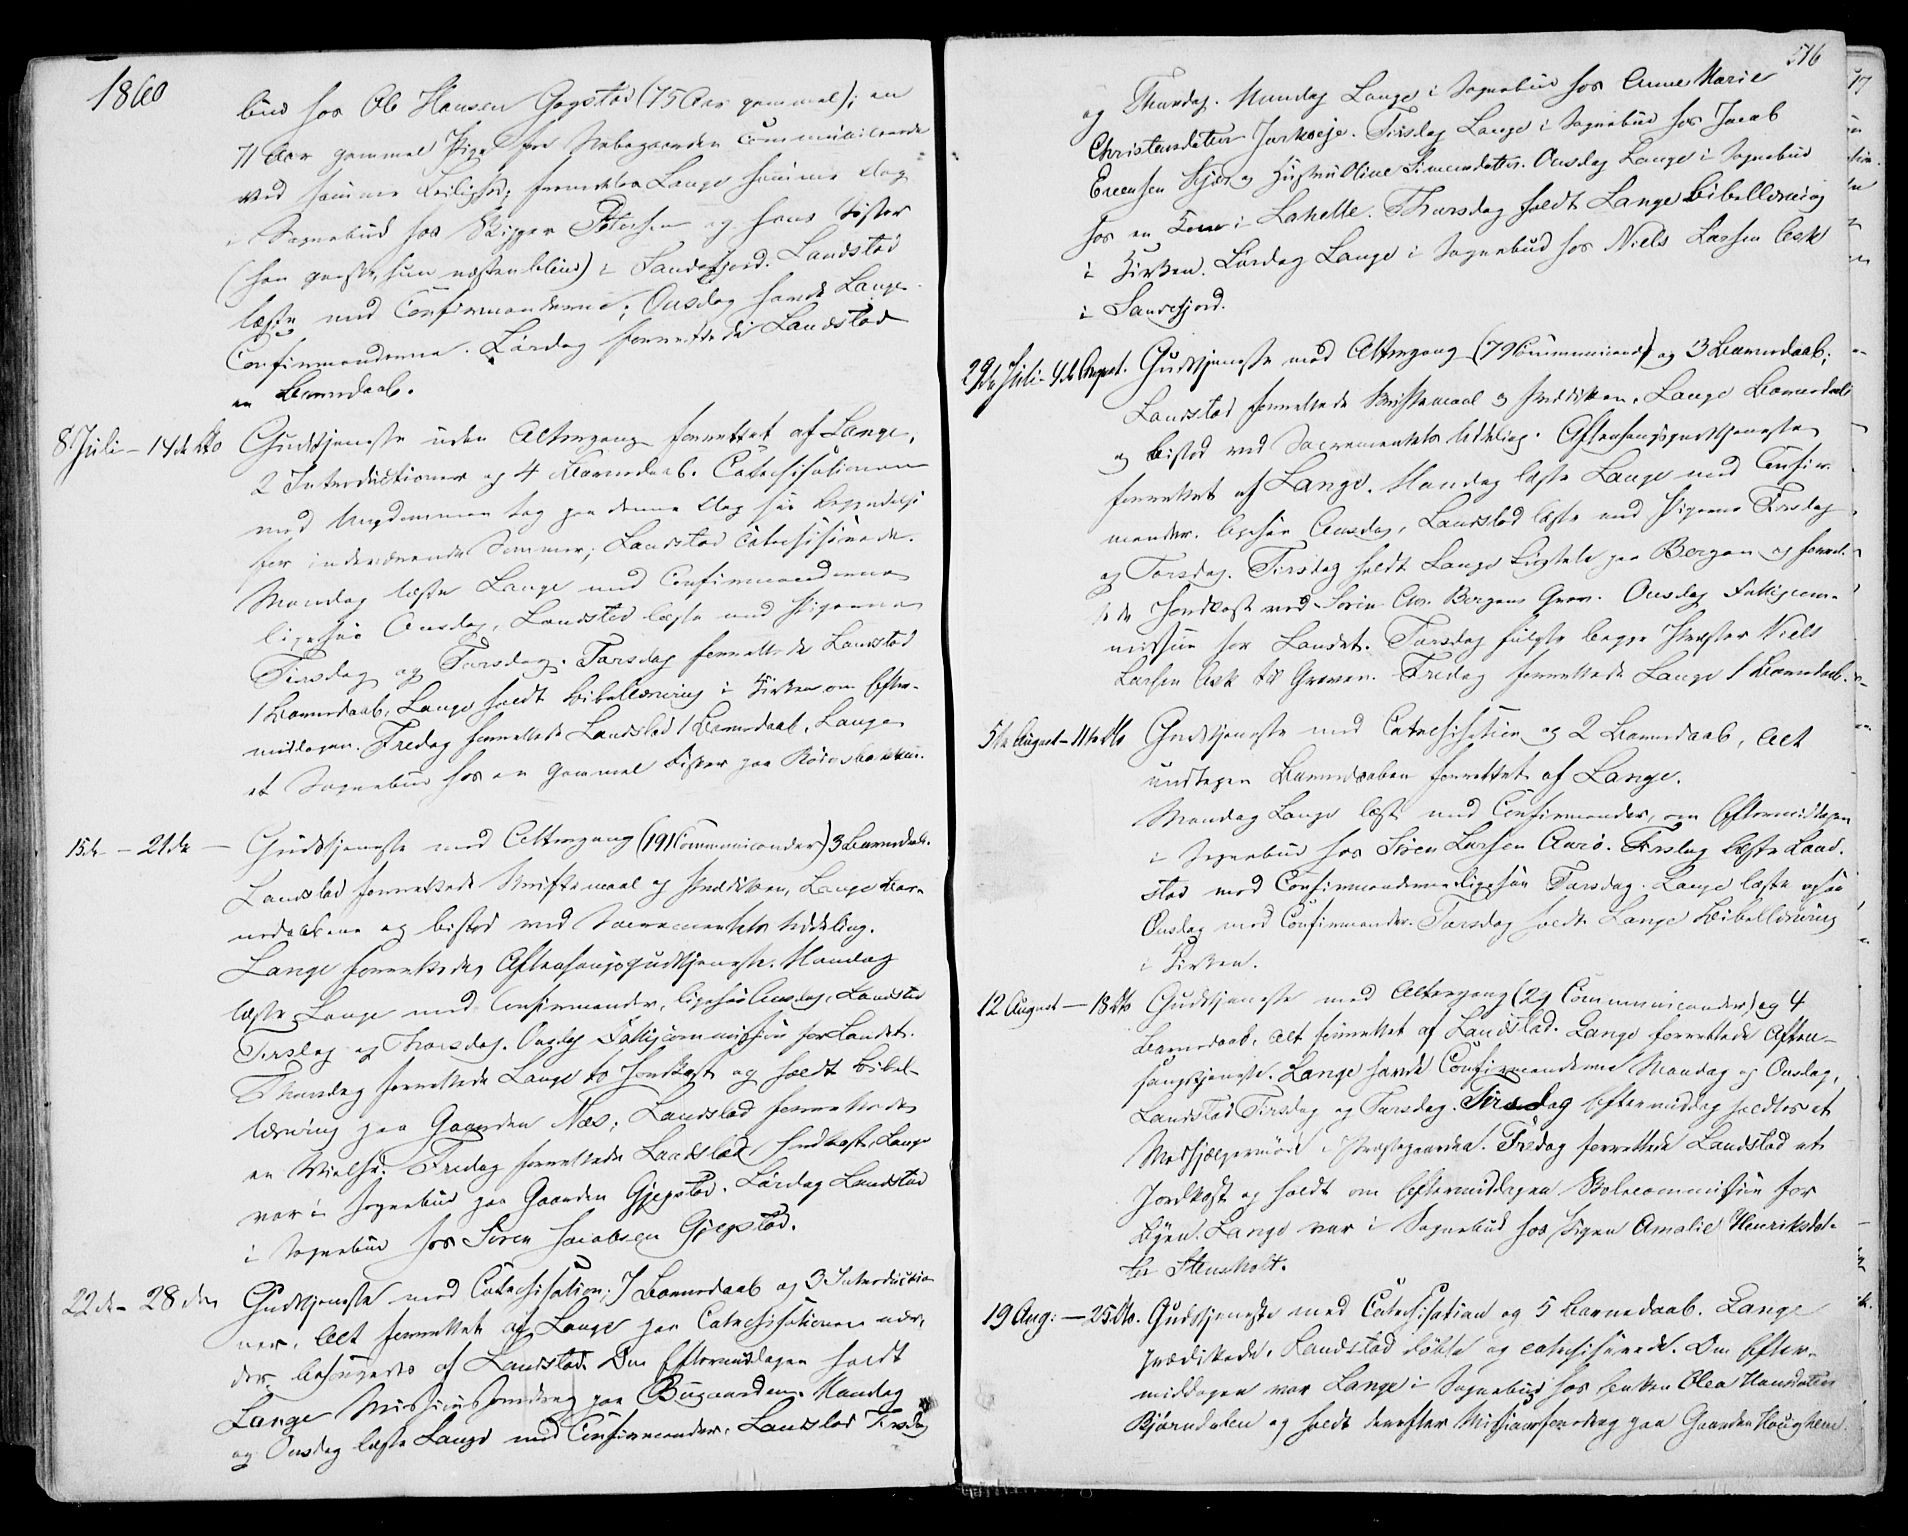 1860
bud hos Ole Hansen Gogstad (75 Aar gammel); en
71 Aar gammel Pige fra Nabogaarden communicerede
ved samme Leilighed; forresten Lange samme Dag
i Sognebud hos Skipper Petersen og hans Søster
(han gigtsvag, hun næsten blind) i Sandefjord. Landstad
læste med Confirmanderne; Onsdag havde Lange
Confirmanderne. Lørdag forrettede Landstad
en Barnedaab.
8 Juli – 14de Dto Gudstjeneste uden Altergang forrettet af Lange,
2 Introductioner og 4 Barnedaab. Catechisationen
med Ungdommen tog paa denne Dag sin Begyndelse
for indeværende Sommer; Landstad catechiserede.
Mandag læste Lange med Confirmanderne
ligesaa Onsdag, Landstad læste med Pigerne
Tirsdag og Torsdag. Torsdag forrettede Landstad
1 Barnedaab, Lange holdt Bibellæsning i Kirken om Efter-
middagen. Fredag forrettede Landstad 1 Barnedaab, Lange
et Sognebud hos en gammel Fisker paa
15de – 21de – Gudstjeneste med Altergang (191 Communicander) 3 Barnedaab.
Landstad forrettede Skriftemaal og Prædiken, Lange Bar-
nedaabene og bistod ved Sacramentets Uddeling.
Lange forrettede Aftensangsgudstjeneste. Mandag
læste Lange med Confirmander, ligesaa Onsdag, Landstad
Tirsdag og Thorsdag. Onsdag Fattigcommission for Landet.
Thorsdag forrettede Lange to Jordkast og holdt Bibel-
læsning paa Gaarden Næs; Landstad forrettede
en Vielse. Fredag forrettede Landstad Jordkast, Lange
var i Sognebud paa Gaarden Gjegstad. Lørdag Landstad
i Sognebud hos Søren Jacobsen Gjegstad.
22de – 28den Gudstjeneste med Catechisation; 7 Barnedaab og 3 Introductio-
ner. Alt forrettet af Lange paa Catechisationen nær,
der besørgedes af Landstad. Om Eftermiddagen holdt
Lange Missionsforedrag paa Bugaarden. Mandag
og Onsdag læste Lange med Confirmander, Landstad Tirsdag
516
og Thorsdag. Mandag Lange i Sognebud hos Anne Marie
Christensdatter Tirsdag Lange i Sognebud hos Jacob
Evensen og Simensdatter. Onsdag Lange i Sognebud
hos en Kone i Lahelle. Thorsdag holdt Lange Bibellæsning
i Kirken. Lørdag Lange i Sognebud hos Niels Larsen Ask
i Sandefjord.
29de Juli – 4de August. Gudstjeneste med Altergang (79 Communicander) og 3 Barnedaab;
Landstad forrettede Skriftemaal og Prædiken, Lange Barnedaab
og bistod ved Sacramentets Uddeling. Aftensangsgudstjeneste
forrettet af Lange. Mandag læste Lange med Confir-
mander. ligesaa Onsdag, Landstad læste med Pigerne Tirsdag
og Torsdag. Tirsdag holdt Lange Ligtale paa Bergan og forret-
tede Jordkast ved Søren Chr. Bergans Grav. Onsdag Fattigcom-
mission for Landet. Torsdag fulgte begge Præster Niels
Larsen Ask til Graven. Fredag forrettede Lange 1 Barnedaab.
5te August – 11te Dto Gudstjeneste med Catechisation og 2 Barnedaab, Alt
undtagen Barnedaaben forrettet af Lange.
Mandag Lange læst med Confirmander, om Eftermiddagen
i Sognebud hos Søren Larsen Aarø. Tirsdag læste Land-
stad med Confirmanderne ligesaa Torsdag. Lange læste ogsaa
Onsdag med Confirmander. Torsdag holdt Lange Bibellæsning
i Kirken.
12 August – 18 Dto Gudstjeneste med Altergang (29 Communicander) og 4
Barnedaab, alt forrettet af Landstad. Lange forrettede Aften-
sangstjeneste. Lange havde Confirmanderne Mandag og Onsdag,
Landstad Tirsdag og Torsdag. Tirsdag Eftermiddag holdtes et
Medhjælpermøde i Præstegaarden. Fredag forrettede Landstad et
Jordkast og holdt om Eftermiddagen Skolecommission for
Byen. Lange var i Sognebud hos Pigen Amalie Henriksdat-
ter Stensholt.
19 Aug: – 25 Dto. Gudstjeneste med Catechisation og 5 Barnedaab. Lange
prædikede. Landstad døbte og catechiserede. Om Efter-
middagen var Lange i Sognebud hos Enken Olea Hansdatter
Bjørndalen og holdt derefter Missionsforedrag paa Gaarden Haughem.